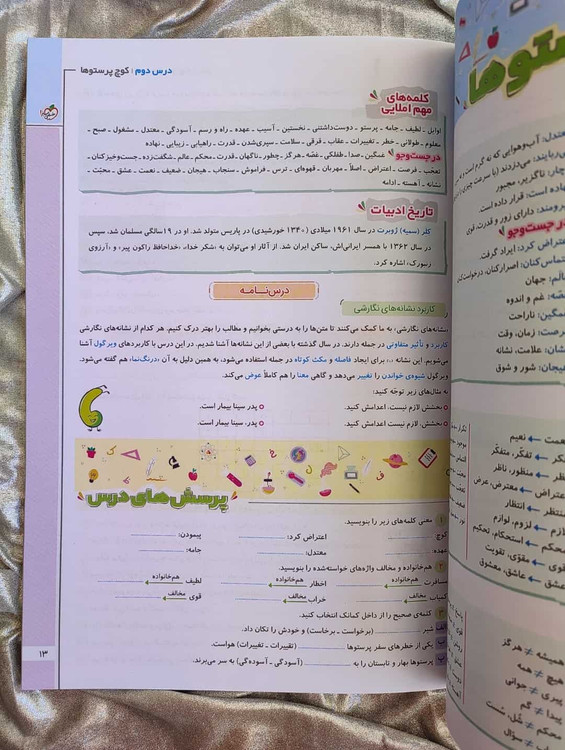 درس دوم: کوچ پرستوها
کلمه‌های
مهم املایی
اوایل ـ لطیف ـ جامه ـ پرستو ـ دوست‌داشتنی ـ نخستین ـ آسیب ـ عهده ـ راه و رسم ـ آسودگی ـ معتدل ـ مشغول ـ صبح ـ
معلوم ـ طولانی ـ خطر ـ تغییرات ـ عقاب ـ فرقی ـ سلامت ـ سپری‌شدن ـ قدرت ـ راهیابی ـ زیبایی ـ نهاده
در جست‌وجو غمگین ـ صدا ـ طفلکی ـ غصّه ـ هرگز ـ بر‌خور ـ ناگهان ـ قدرت ـ محکم ـ عالم ـ شگفت‌زده ـ جست‌وخیزکنان ـ
تعجب ـ فرصت ـ اعتراض ـ اصلاً ـ مهربان ـ قهوه‌ای ـ ترس ـ فراموش ـ سنجاب ـ هیجان ـ ضعیف ـ نعمت ـ عشق ـ محبّت ـ
نشانه ـ آهسته ـ ادامه
تاریخ ادبیات
کلر (سمیه) ژوبرت در سال ۱۹۶۱ میلادی (۱۳۴۰ خورشیدی) در پاریس متولد شد. او در ۱۹سالگی مسلمان شد. سپس
در سال ۱۳۶۲ با همسر ایرانی‌اش، ساکن ایران شد. از آثار او می‌توان به «شکر خدا»، «خداحافظ راکون پیر»، و «آرزوی
زنبورک» اشاره کرد.
درس‌نـامـه
کاربرد نشانه‌های نگارشی
نشانه‌های نگارشی، به ما کمک می‌کنند تا متن‌ها را به درستی بخوانیم و مطالب را بهتر درک کنیم. هر کدام از نشانه‌های نگارشی
کاربرد و تأثیر متفاوتی در جمله دارند. در سال گذشته با بعضی از این نشانه‌ها آشنا شدیم. در این درس با کاربردهای ویرگول آشنا
می‌شویم. این نشانه «،» برای ایجاد فاصله و مکث کوتاه در جمله استفاده می‌شود، به همین دلیل به آن «درنگ‌نما» هم گفته می‌شود.
ویرگول شیوه‌ی خواندن را تغییر می‌دهد و گاهی معنا را هم کاملاً عوض می‌کند.
به مثال‌های زیر توجه کنید:
بخشش، لازم نیست، اعدامش کنید. پدر سینا بیمار است.
بخشش، لازم نیست اعدامش کنید. پدر، سینا بیمار است.
پرسش‌های درس
۱ معنی کلمه‌های زیر را بنویسید.
کوچ: اعتراض کرد: پیمودن:
عهده: معتدل: جامه:
۲ هم‌خانواده و مخالف واژه‌های خواسته‌شده را بنویسید.
مسافرت هم‌خانواده اخطار هم‌خانواده لطیف هم‌خانواده
کمیاب مخالف خراب مخالف قوی مخالف
۳ کلمه‌ی صحیح را از داخل کمانک انتخاب کنید.
الف شیر (برخواست ـ برخاست) و خودش را تکان داد.
ب یکی از خطرهای سفر پرستوها (تقییرات ـ تغییرات) هواست.
پ پرستوها بهار و تابستان را به (آسودگی ـ آسوده‌گی) به سر می‌برند.
۱۳
در جست‌وجو
اعتراض کرد: ایراد گرفت.
عالَم: جهان
غصّه: غم و اندوه
غمگین: ناراحت
فرصت: زمان، وقت
نشان: علامت، نشانه
هیجان: شور و شوق
نعمت نعیم
تفکر، متفکّر
منظور، ناظر
معترض، عرض
انتظار
لزوم، لوازم
استحکام، تحکیم
مقوّی، تقویت
عشق عاشق، معشوق
همیشه ≠ هرگز
هیچ ≠ همه
پیری ≠ جوانی
پیدا ≠ گم
محکم ≠ شُل، سُست